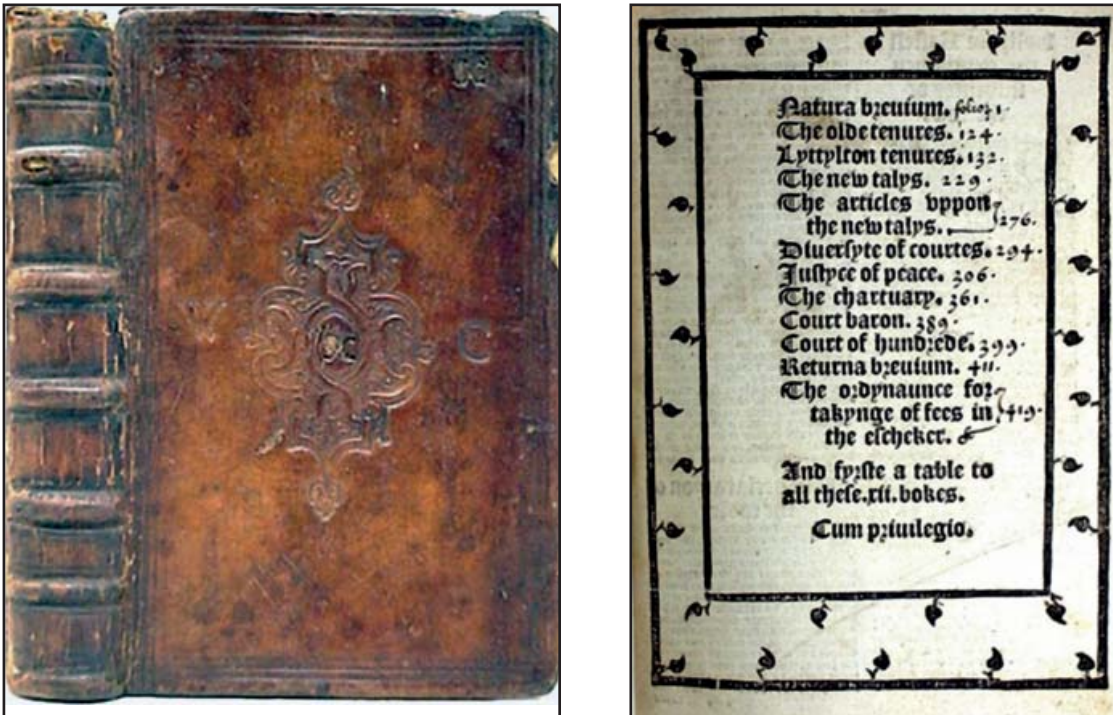 C
Natura breuium. folio 1.
The olde tenures. 124.
Lyttylton tenures. 132.
The new talys. 229.
The articles vppon
the new talys. 276.
Diuersyte of courtes. 294.
Iustyce of peace. 306.
The chartuary. 361.
Court baron. 389.
Court of hundrede. 399.
Returna breuium. 411.
The ordynaunce for
takynge of fees in 419.
the escheker.
And fyrste a table to
all these.xii.bokes.
Cum priuilegio.